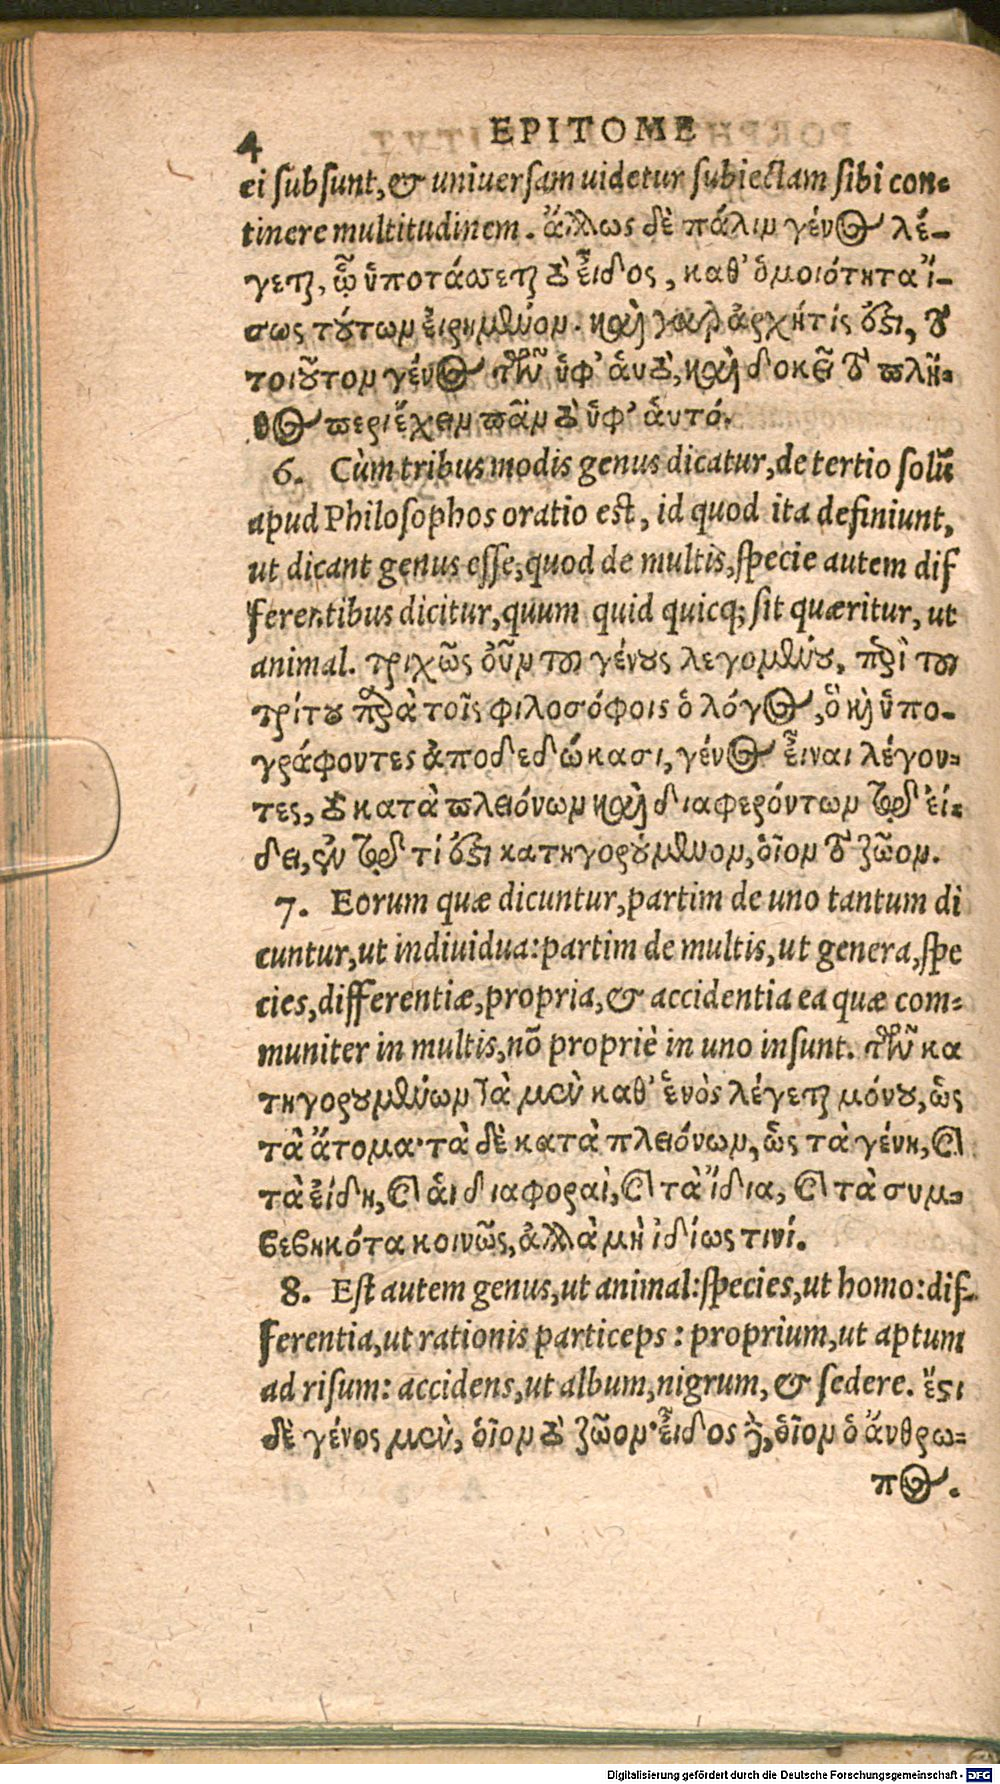 4 EPITOME
ei subsunt, & uniuersam uidetur subiectam sibi con-
tinere multitudinem. ἄλλως δὲ πάλιν γένος λέ-
γεται, ᾧ ὑποτάσσεται τὸ εἶδος, καθ' ὁμοιότητα ἴ-
σως τούτων εἰρημένον. καὶ γὰρ ἀρχή τίς ἐστι, τὸ
τοιοῦτον γένος τῶν ὑφ' ἁυτό, καὶ δοκεῖ τὸ πλῆ-
θος περιέχειν πᾶν τὸ ὑφ' ἁυτό.
6. Cùm tribus modis genus dicatur, de tertio solũ
apud Philosophos oratio est, id quod ita definiunt,
ut dicant genus esse, quod de multis, specie autem dif
ferentibus dicitur, quum quid quicq; sit quæritur, ut
animal. τριχῶς οὖν τοῦ γένους λεγομένου, περὶ τοῦ
τρίτου παρὰ τοῖς φιλοσόφοις ὁ λόγος, ὃ καὶ ὑπο-
γράφοντες ἀποδεδώκασι, γένος εἶναι λέγον-
τες, τὸ κατὰ πλειόνων καὶ διαφερόντων τῷ εἴ-
δει, ἐν τῷ τί ἐστι κατηγορούμενον, οἷον τὸ ζῶον.
7. Eorum quæ dicuntur, partim de uno tantum di
cuntur, ut indiuidua: partim de multis, ut genera, spe
cies, differentiæ, propria, & accidentia ea quæ com-
muniter in multis, nõ propriè in uno insunt. τῶν κα
τηγορουμένων τὰ μὲν καθ' ἑνὸς λέγεται μόνου, ὡς
τὰ ἄτομα· τὰ δὲ κατὰ πλειόνων, ὡς τὰ γένη, καὶ
τὰ εἴδη, καὶ ἁι διαφοραὶ, καὶ τὰ ἴδια, καὶ τὰ συμ-
βεβηκότα κοινῶς, ἀλλὰ μὴ ἰδίως τινί.
8. Est autem genus, ut animal: species, ut homo: dif-
ferentia, ut rationis particeps: proprium, ut aptum
ad risum: accidens, ut album, nigrum, & sedere. ἔστι
δὲ γένος μὲν, οἷον τὸ ζῶον· εἶδος δὲ, οἷον ὁ ἄνθρω-
πος.
Digitalisierung gefördert durch die Deutsche Forschungsgemeinschaft - DFG